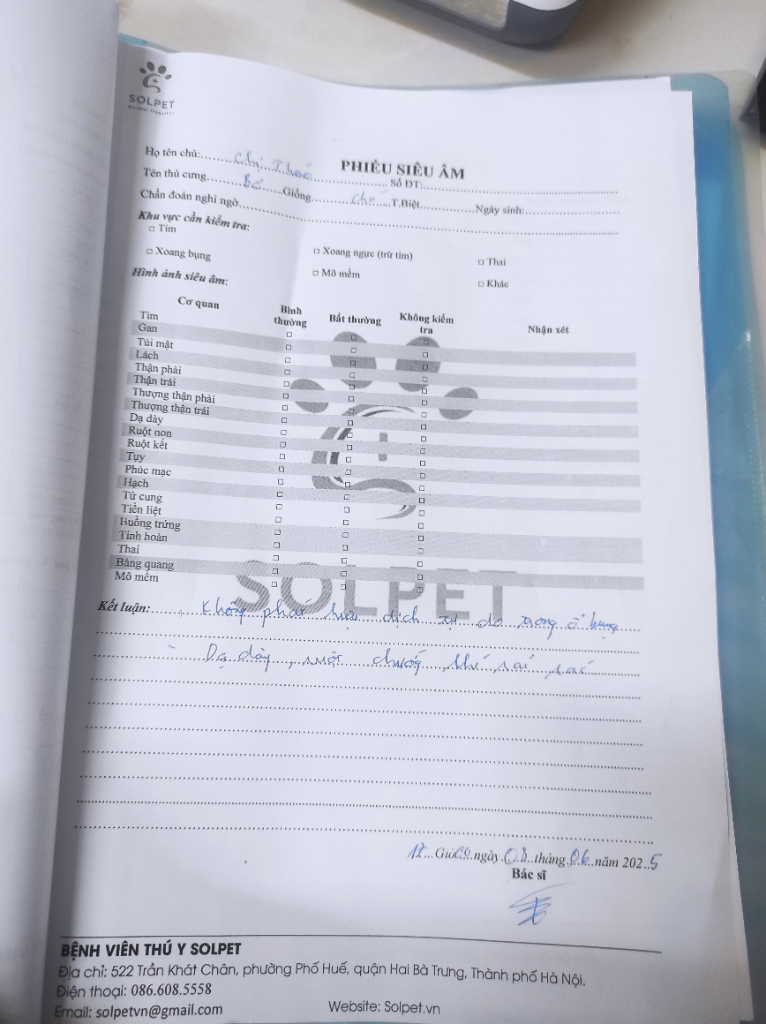 SOLPET
PHIẾU SIÊU ÂM
Họ tên chủ: Số ĐT:
Tên thú cưng: Giống T.Biệt Ngày sinh:
Chẩn đoán nghi ngờ
Khu vực cần kiểm tra:
□ Tim □ Xoang ngực (trừ tim) □ Thai
□ Xoang bụng □ Mô mềm □ Khác
Hình ảnh siêu âm:
Cơ quan Bình thường Bất thường Không kiểm tra Nhận xét
Tim
Gan
Túi mật
Lách
Thận phải
Thận trái
Thượng thận phải
Thượng thận trái
Dạ dày
Ruột non
Ruột kết
Tụy
Phúc mạc
Hạch
Tử cung
Tiền liệt
Buồng trứng
Tinh hoàn
Thai
Bàng quang
Mô mềm
SOLPET
Kết luận: - Không phát hiện dịch tự do trong ổ bụng
- Dạ dày, ruột chướng khí rải rác
17 Giờ 00 ngày 08 tháng 06 năm 2025
Bác sĩ
BỆNH VIÊN THÚ Y SOLPET
Địa chỉ: 522 Trần Khát Chân, phường Phố Huế, quận Hai Bà Trưng, Thành phố Hà Nội.
Điện thoại: 086.608.5558
Email: solpetvn@gmail.com Website: Solpet.vn